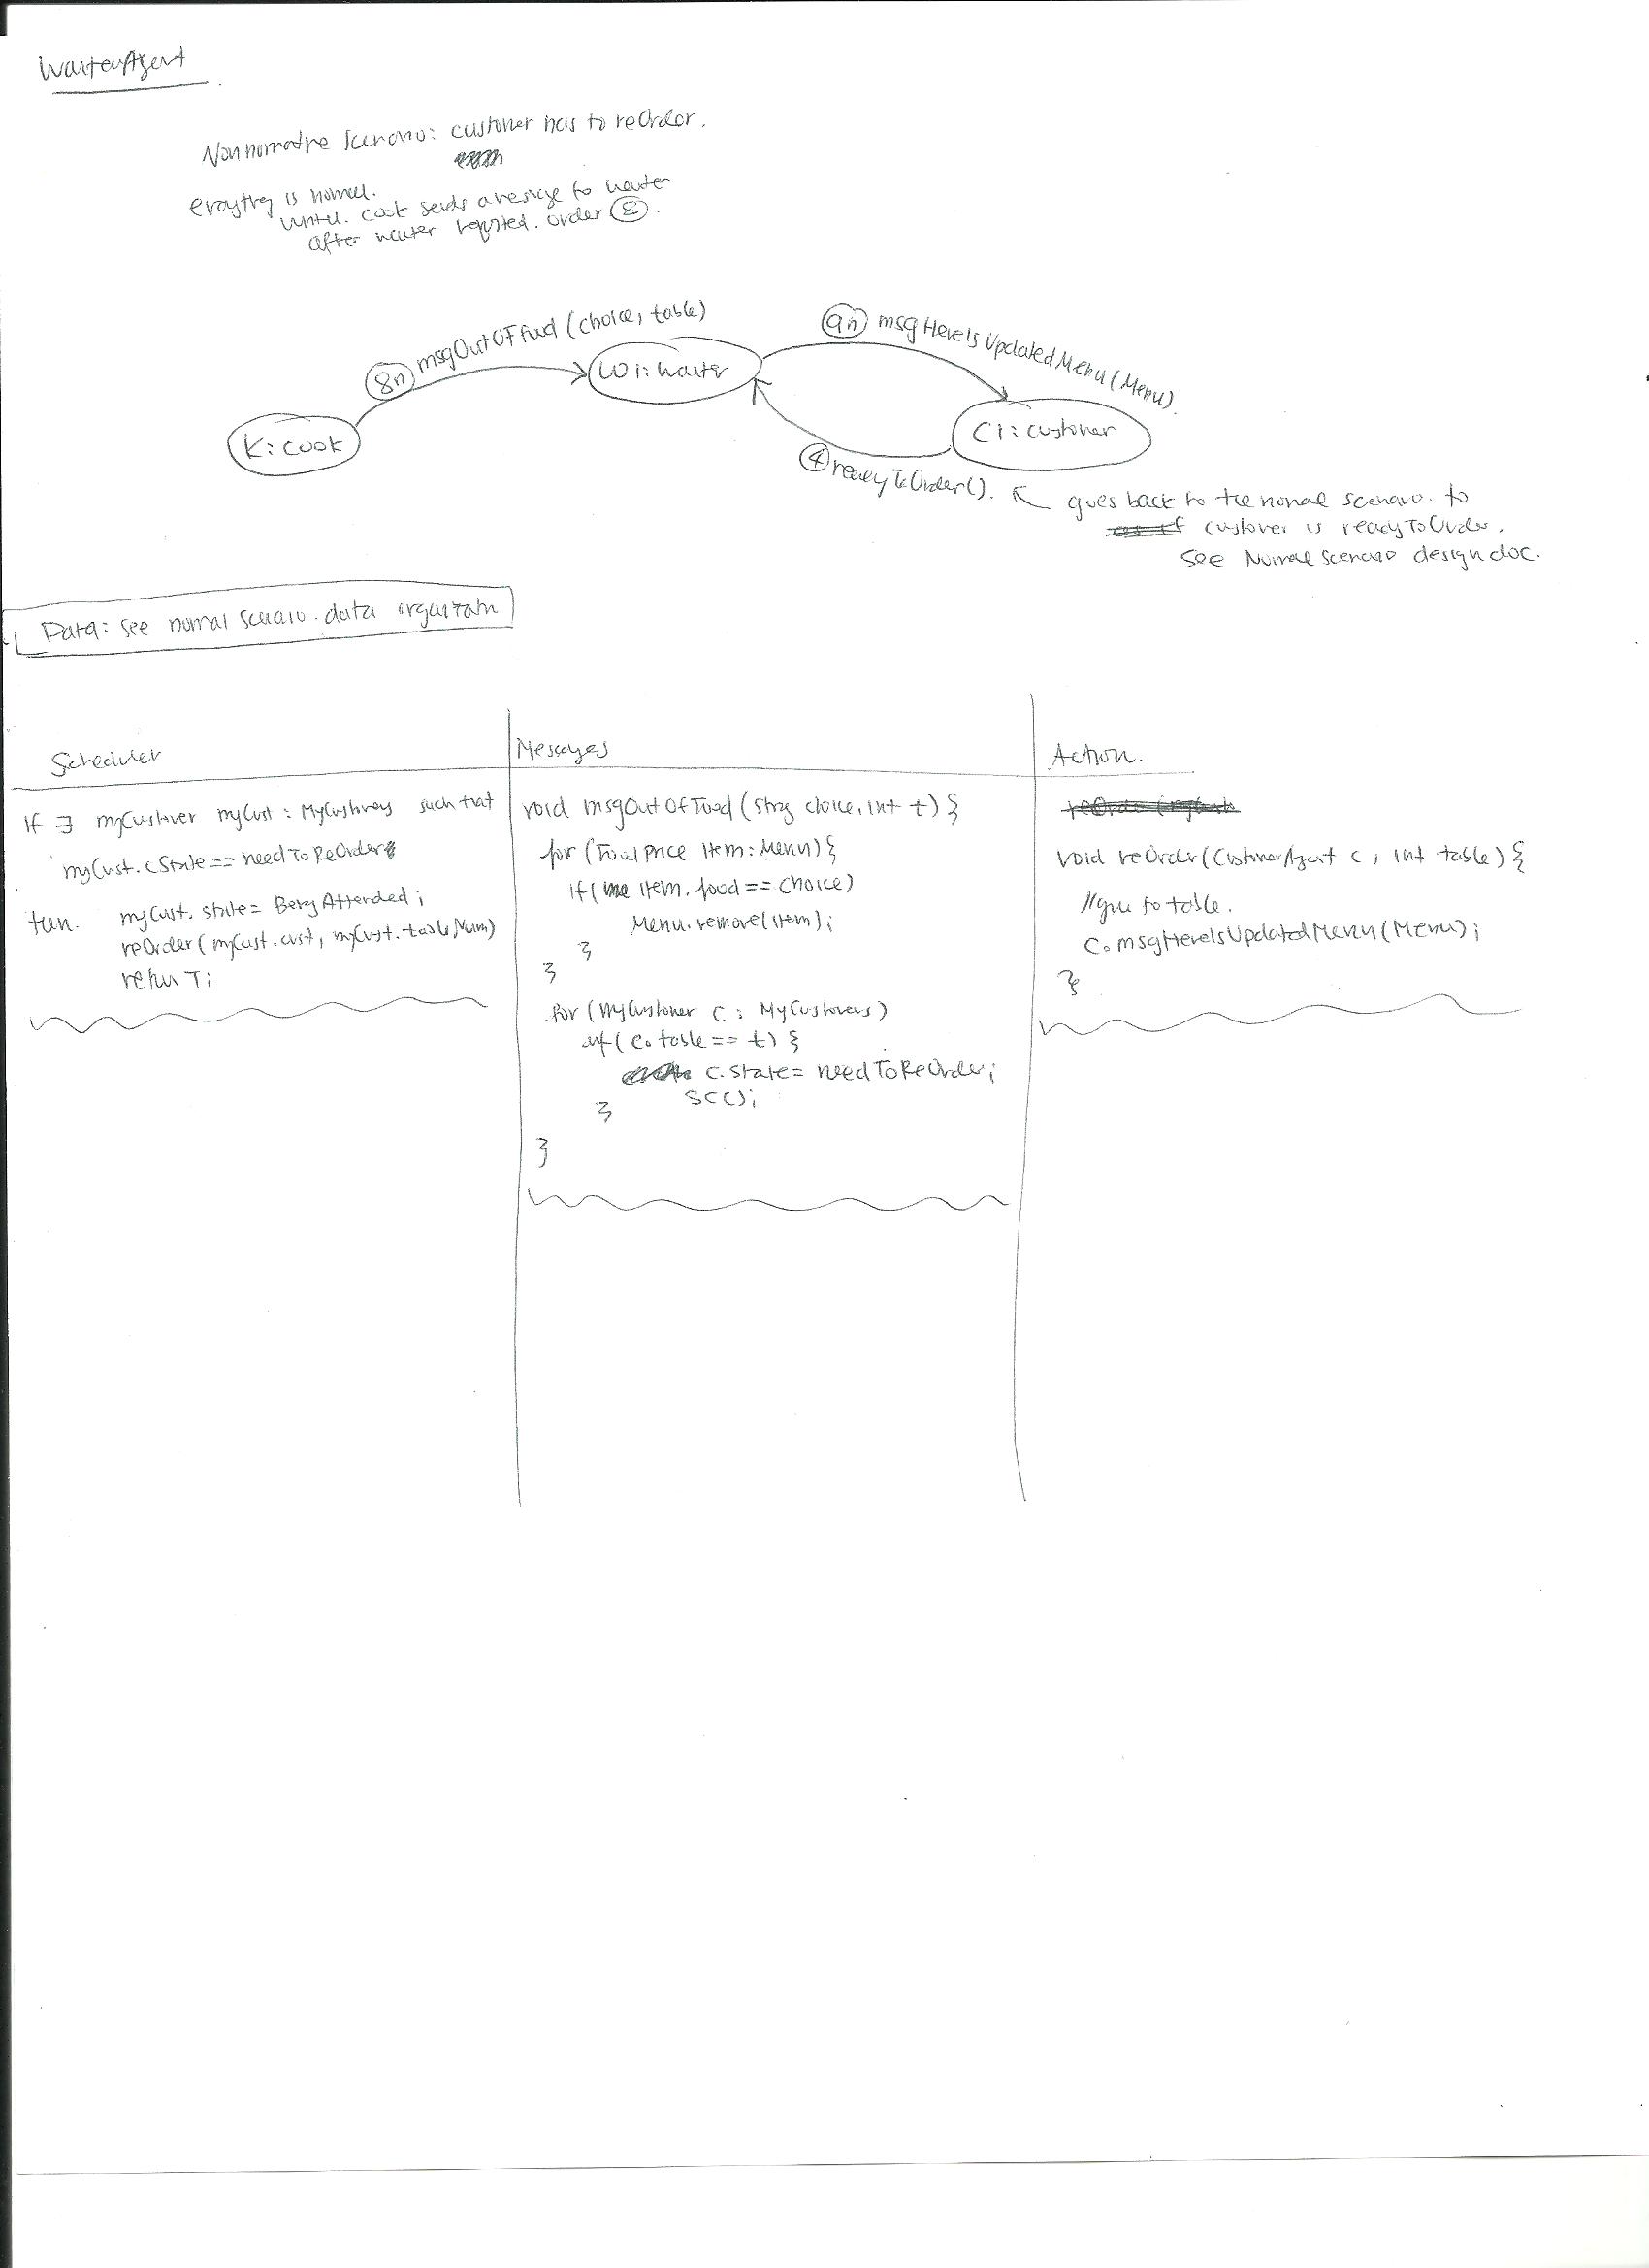 WaiterAgent
Nonnormative Scenario: customer has to reOrder.
everything is normal.
until. cook sends a message to waiter
after waiter reqsted. order 8.
8n msgOutOfFood (choice, table)
9n msgHereIsUpdatedMenu(Menu).
W1: waiter
K: cook
C1: customer
4 readyToOrder().
goes back to the normal scenario. to
customer is readyToOrder.
See Normal Scenario design doc.
Data: see normal scenario. data organizatn
Scheduler
If ∃ myCustomer myCust : MyCustomers such that
myCust.cState == needToReOrder
then. myCust.state = BeingAttended;
reOrder(myCust.cust, myCust.tableNum)
return T;
Messages
void msgOutOfFood (String choice, int t) {
for (FoodPrice item: Menu) {
if( item.food == choice)
Menu.remove(item);
}
}
for (MyCustomer c : MyCustomers)
if( c.table == t) {
c.state = needToReOrder;
SCC();
}
}
Action.
void reOrder(CustomerAgent c, int table) {
//goe to table.
c.msgHereIsUpdatedMenu(Menu);
}